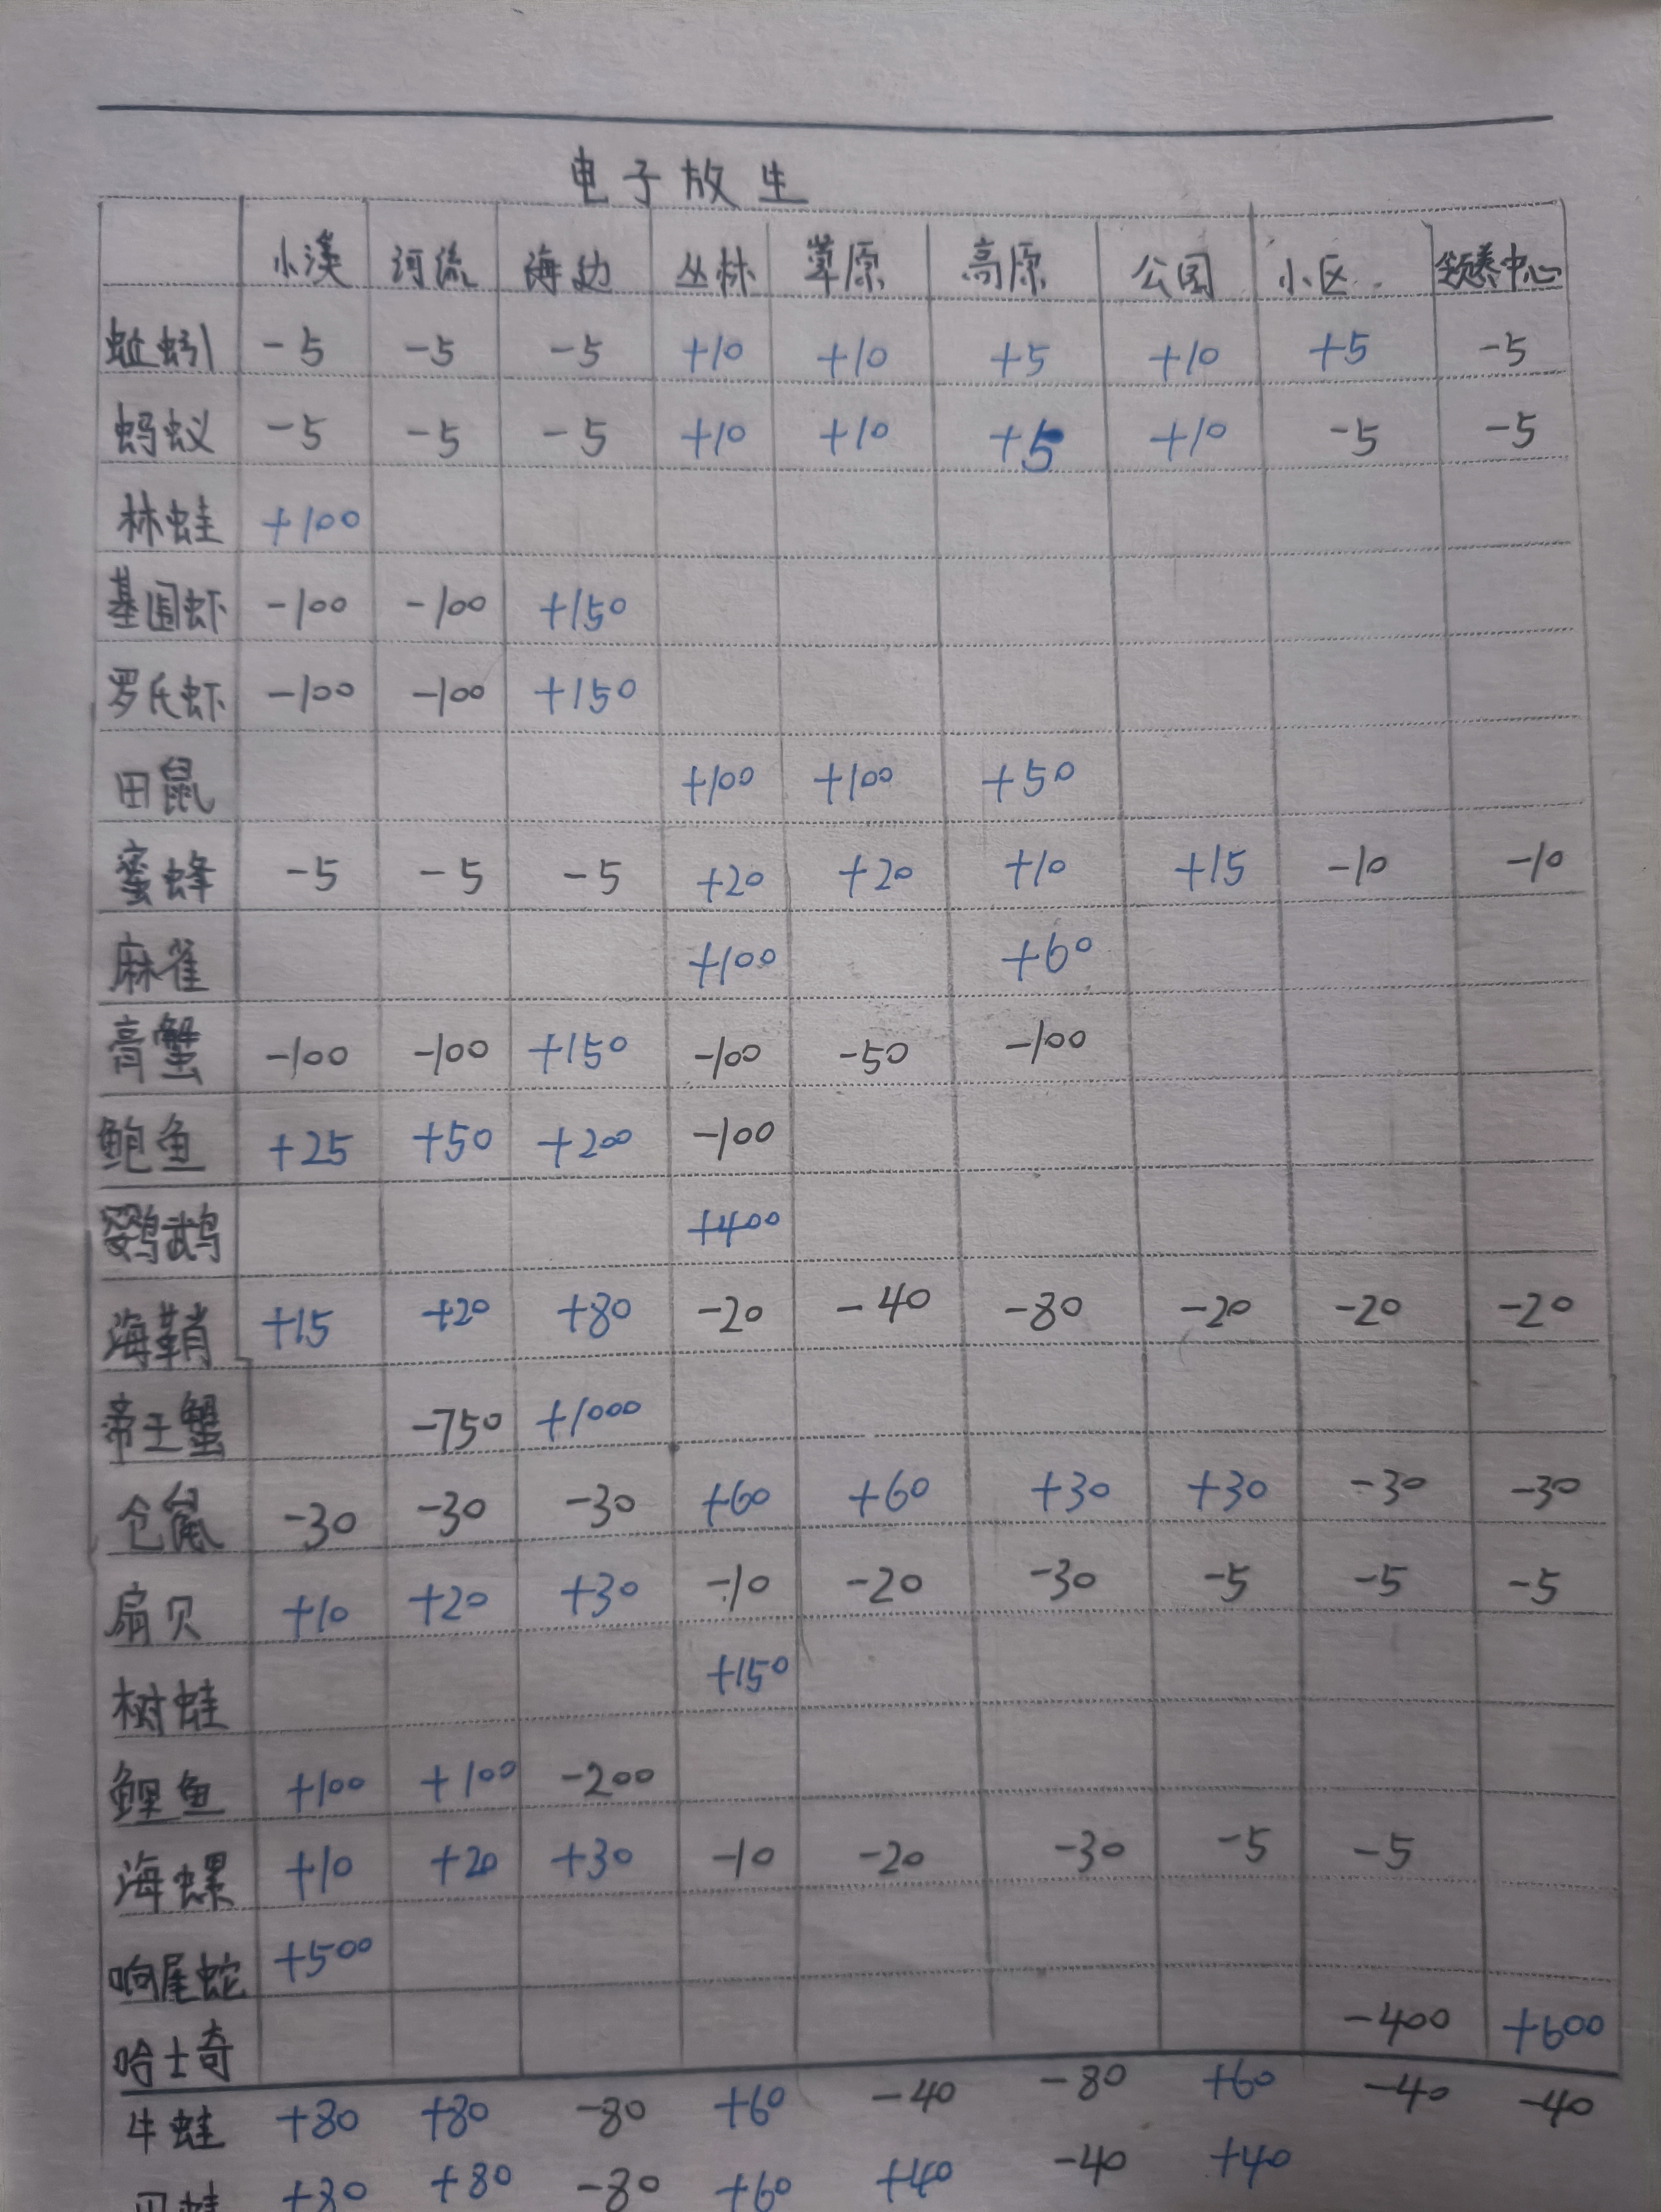 电子放生
小溪 河流 海边 丛林 草原 高原 公园 小区 领养中心
蚯蚓 -5 -5 -5 +10 +10 +5 +10 +5 -5
蚂蚁 -5 -5 -5 +10 +10 +5 +10 -5 -5
林蛙 +100
基围虾 -100 -100 +150
罗氏虾 -100 -100 +150
田鼠 +100 +100 +50
蜜蜂 -5 -5 -5 +20 +20 +10 +15 -10 -10
麻雀 +100 +60
膏蟹 -100 -100 +150 -100 -50 -100
鲍鱼 +25 +50 +200 -100
鹦鹉 +400
海鞘 +15 +20 +80 -20 -40 -80 -20 -20 -20
帝王蟹 -750 +1000
仓鼠 -30 -30 -30 +60 +60 +30 +30 -30 -30
扇贝 +10 +20 +30 -10 -20 -30 -5 -5 -5
树蛙 +150
鲤鱼 +100 +100 -200
海螺 +10 +20 +30 -10 -20 -30 -5 -5
响尾蛇 +500
哈士奇 -400 +600
牛蛙 +80 +80 -80 +60 -40 -80 +60 -40 -40
蛙 +80 +80 -80 +60 +40 -40 +40